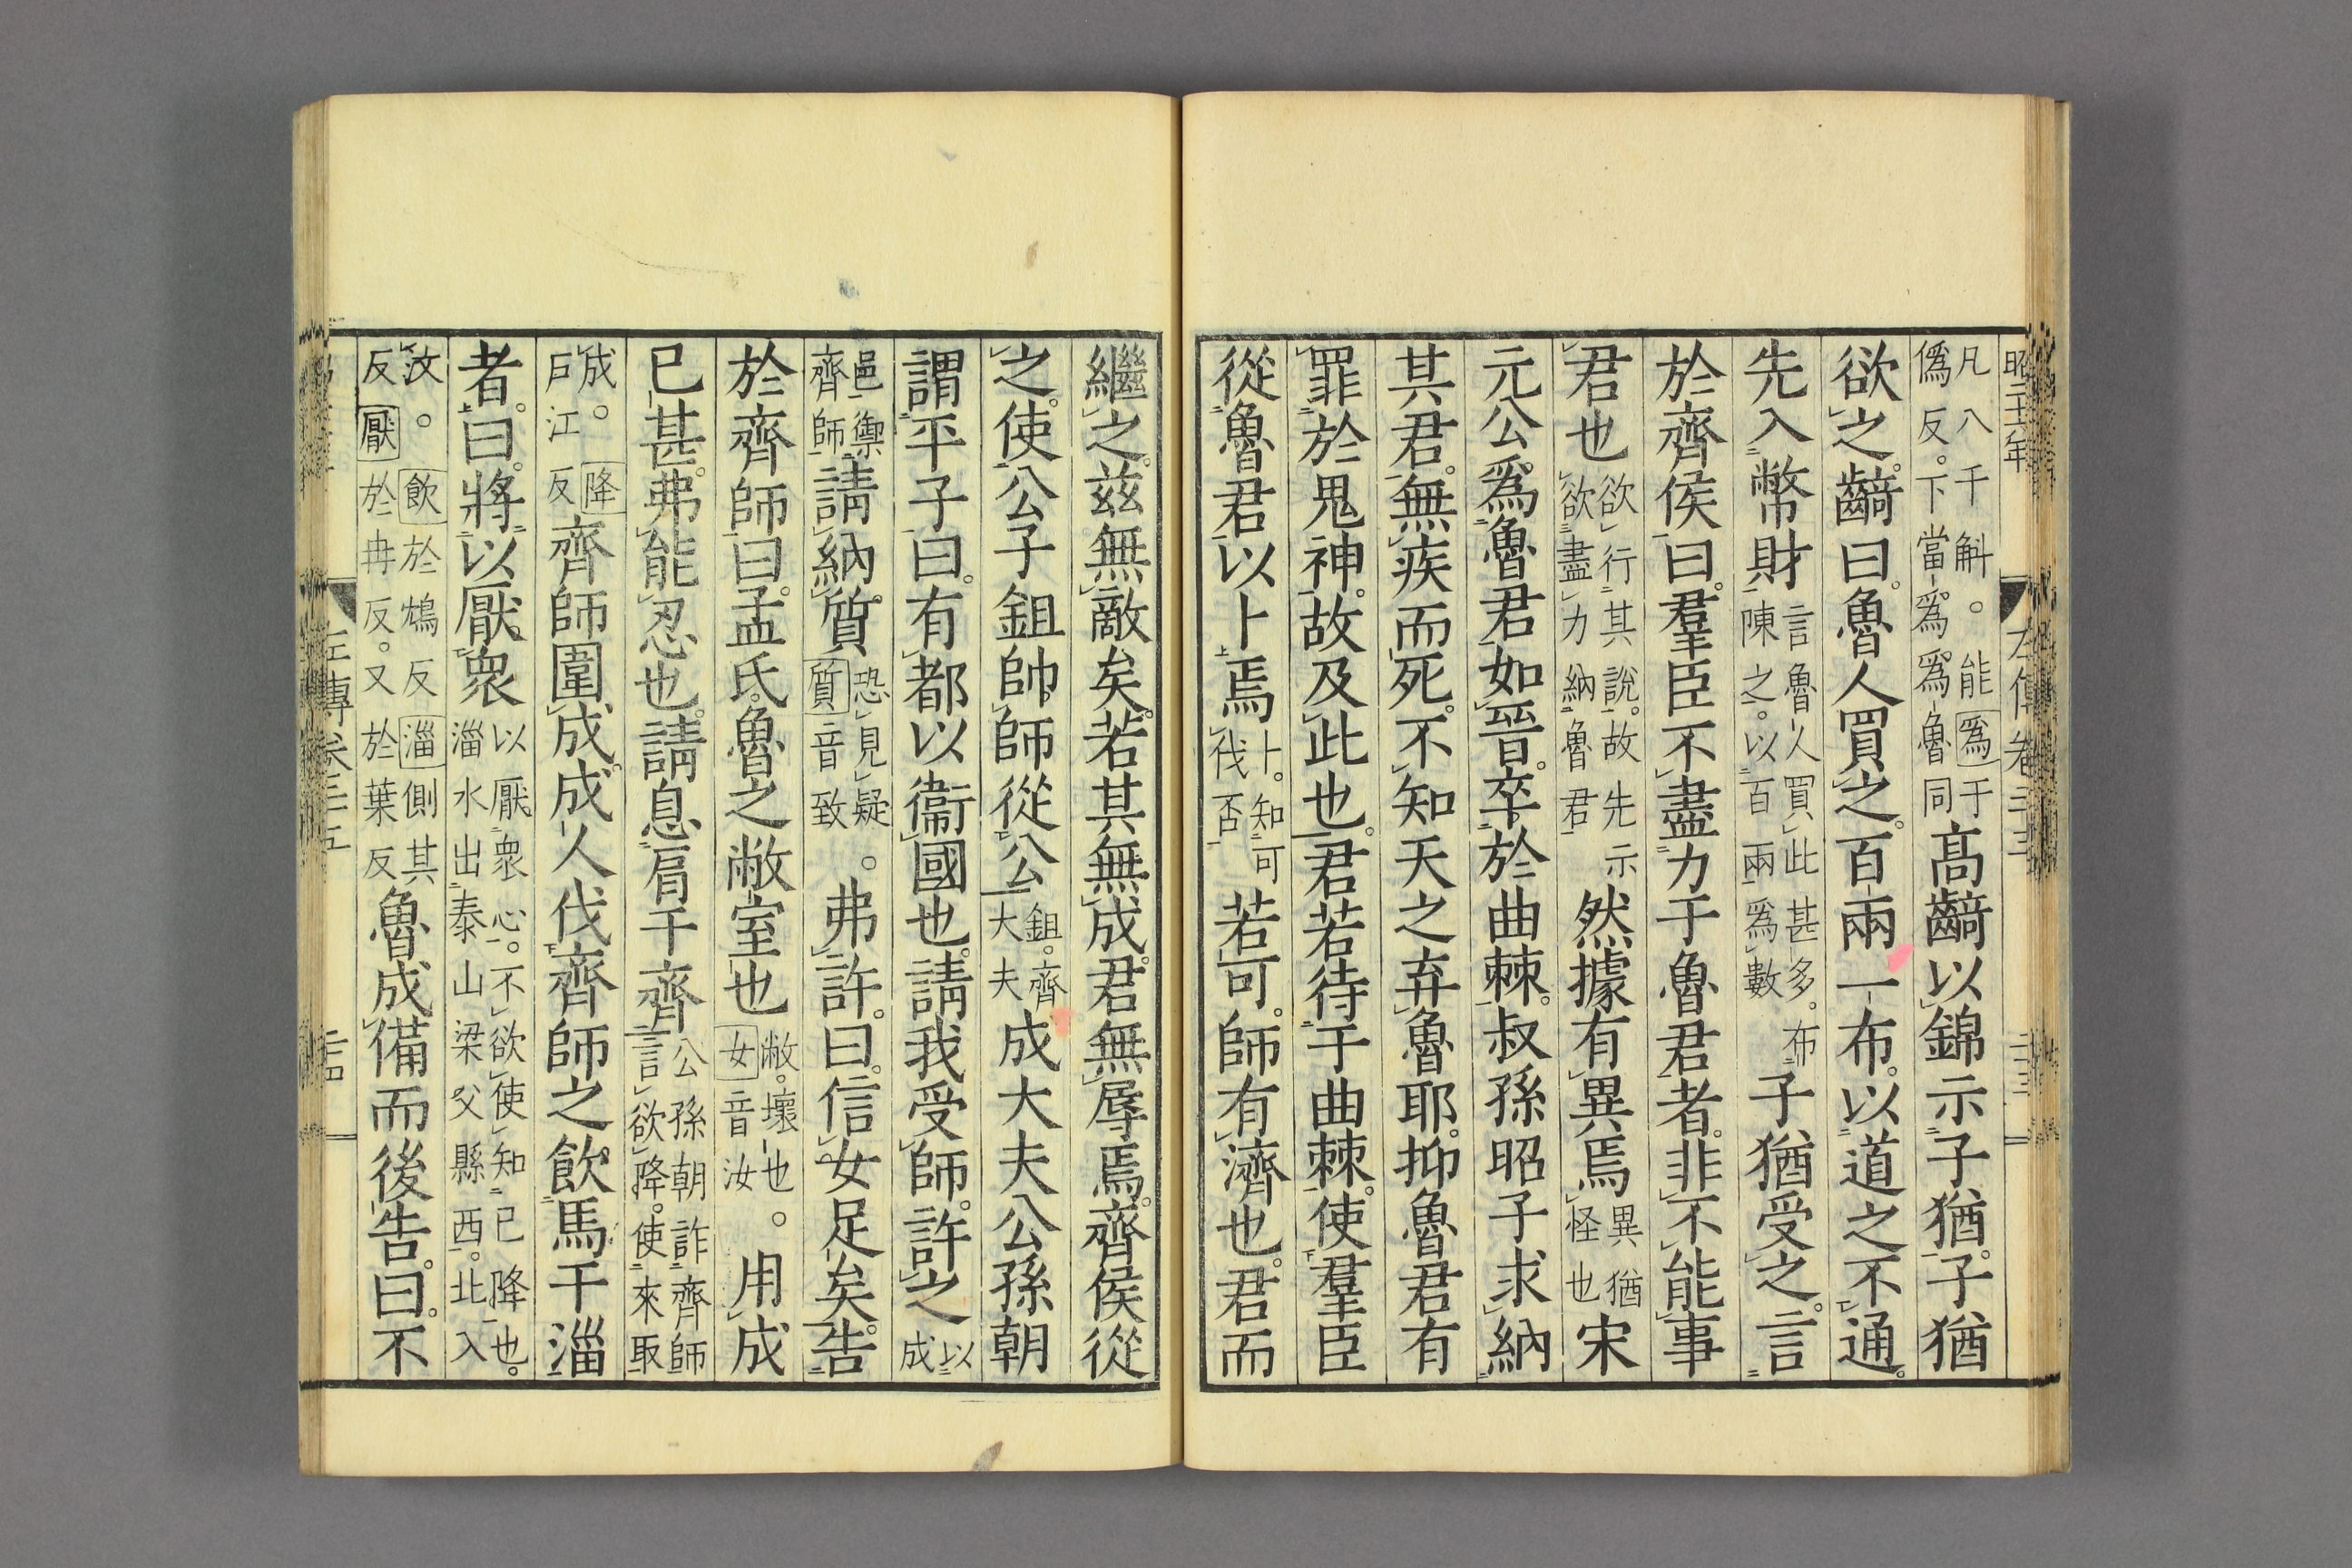 凡八千斛。能爲于僞反。下當爲爲魯同高齮以錦示子猶。子猶
欲之。齮曰。魯人買之。百兩一布。以道之不通。
先入幣財言魯人買此甚多。布陳之。以百兩爲數子猶受之。言
於齊侯曰。羣臣不盡力于魯君者。非不能事
君也欲行其說。故先示欲盡力納魯君然據有異焉異猶怪也宋
元公爲魯君如晉。卒於曲棘。叔孫昭子求納
其君。無疾而死。不知天之弃魯耶。抑魯君有
罪於鬼神。故及此也。君若待于曲棘。使羣臣
從魯君以卜焉卜。知可伐否若可。師有濟也。君而
繼之。茲無敵矣。若其無成。君無辱焉。齊侯從
之。使公子鉏帥師從公鉏。齊大夫成大夫公孫朝
謂平子曰。有都以衞國也。請我受師。許之以成
邑禦齊師請納質恐見疑。質音致弗許。曰。信女足矣。告
於齊師曰。孟氏。魯之敝室也敝。壞也。女音汝用成
已甚。弗能忍也。請息肩于齊公孫朝詐齊師言欲降。使來取
成。降戶江反齊師圍成。成人伐齊師之飲馬于淄
者。曰。將以厭衆以厭衆心。不欲使知已降也。淄水出泰山梁父縣西。北入
汶。飲於鴆反淄側其反厭於冉反。又於葉反魯成備而後告。曰。不
左傳卷二十五